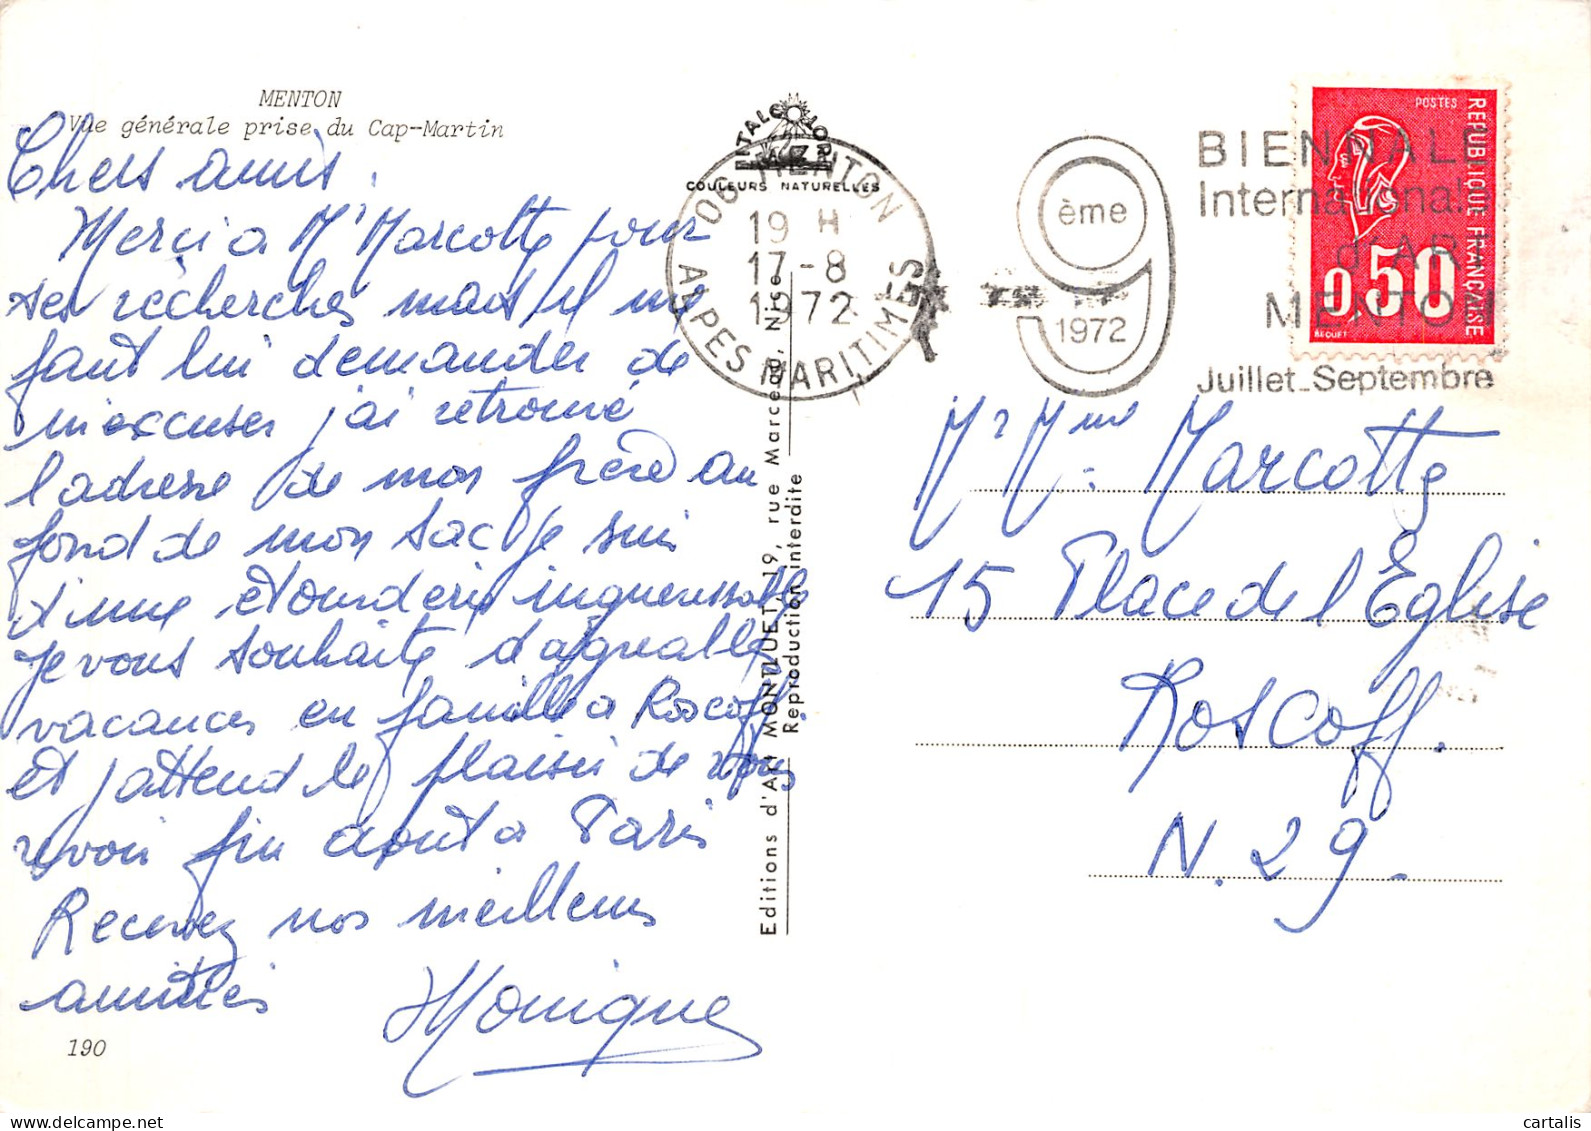 MENTON
Vue générale prise du Cap-Martin
Chers amis.
Merci a Mr Marcotte pour
ses recherches mais il me
faut lui demander de
m'excuser j'ai retrouvé
l'adresse de mon frère au
fond de mon sac je suis
d'une étourderie inguerissable
Je vous souhaite d'agreables
vacances en famille a Roscoff.
et j'attend le plaisir de vous
revoir fin août a Paris
Recevez nos meilleures
amitiés Monique
190
ITALCOLOR
COULEURS NATURELLES
06 MENTON
19 H
17-8
1972
ALPES MARITIMES
9
ème
1972
BIENNALE
Internationale
d'ART
MENTON
Juillet-Septembre
POSTES
REPUBLIQUE FRANÇAISE
0,50
BEQUET
Editions d'Art MONTLUET, 19, rue Marceau, Nice
Reproduction interdite
Mr Mme Marcotte
15 Place de l'Eglise
Roscoff.
N. 29.
delcampe.net
cartalis